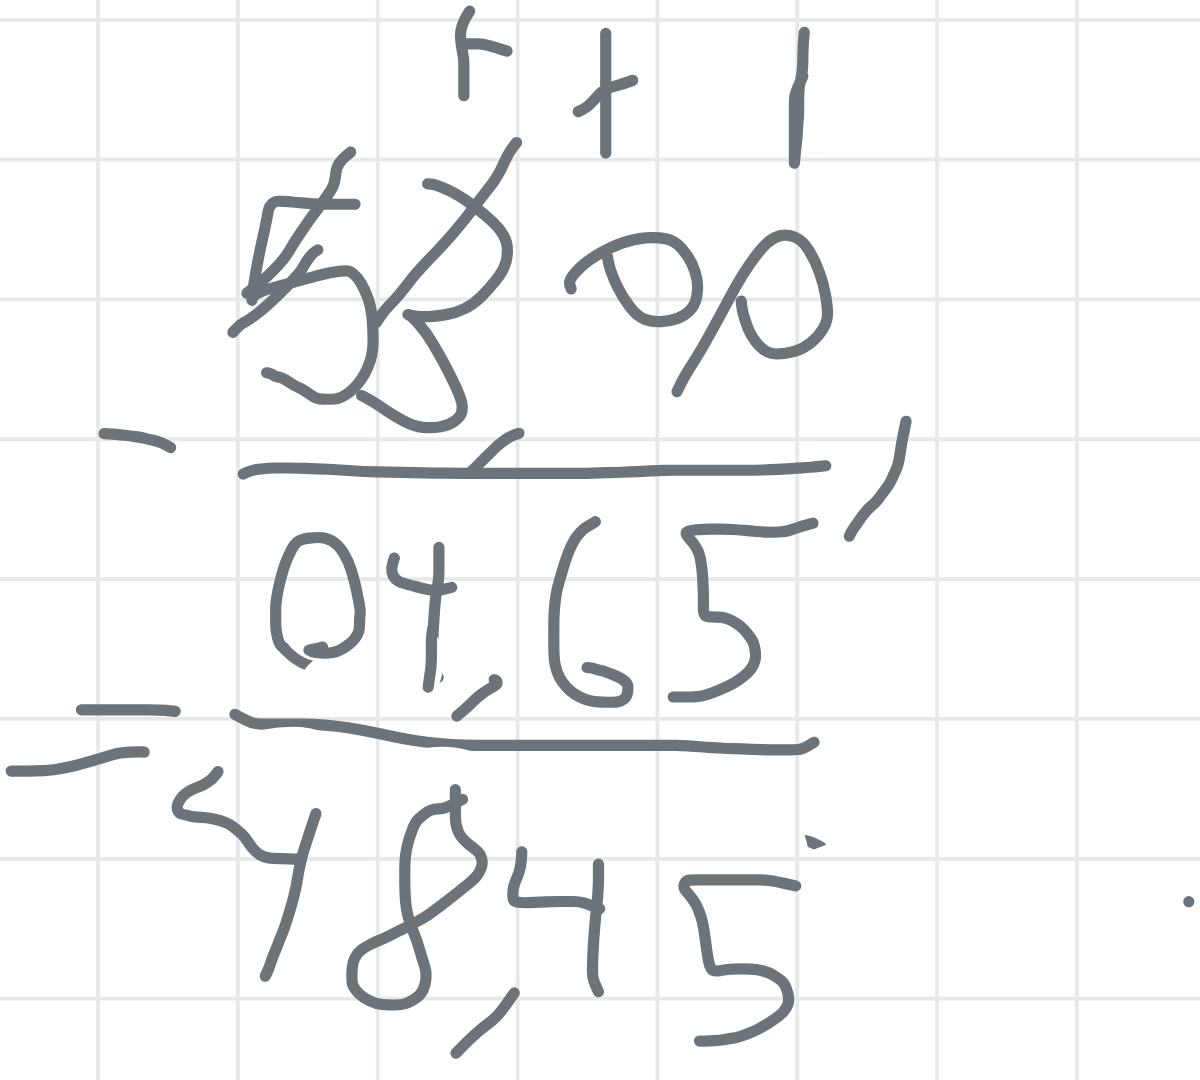 1 1 1
53,00
- 04,65
= 48,45